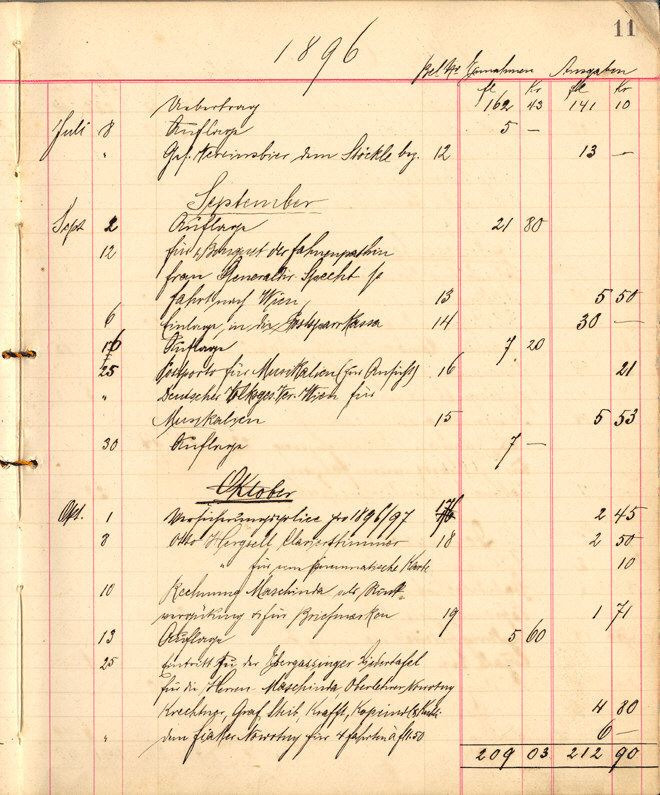 11
1896
Bel. No Einnahmen Ausgaben
fl Kr fl Kr
Uebertrag 162 43 141 10
Juli 8 Auflage 5 —
" Vereinsbier dem Stöckle bez. 12 13 —
September
Sept 2 Auflage 21 80
12 für Bouquet der Fahnenpathin
Frau Generaldir. Specht
Fahrt nach Wien, 13 5 50
6 Einlage in die Postsparkassa 14 30 —
Auflage 7 20
25 Porto für Musikalien (zur Ansicht) 16 21
" Deutscher Volksges. Ver. Wien für
Musikalien 15 5 53
30 Auflage 7 —
Oktober
Okt. 1 Versicherungspolice pro 1896/97 17 2 45
8 Otto Hergsell, Clavierstimmer 18 2 50
" für eine pneumatische Karte 10
10 Rechnung Maschinda als
vergütung für Briefmarken 19 1 71
13 Auflage 5 60
25 Eintritt zu der Ebergassinger Liedertafel
für die Herren Maschinda, Oberlehrer Nowotny
Graf, Krafft, 4 80
" dem Fiaker Nowotny für 4 Fahrten à fl 1.50 6 —
209 03 212 90